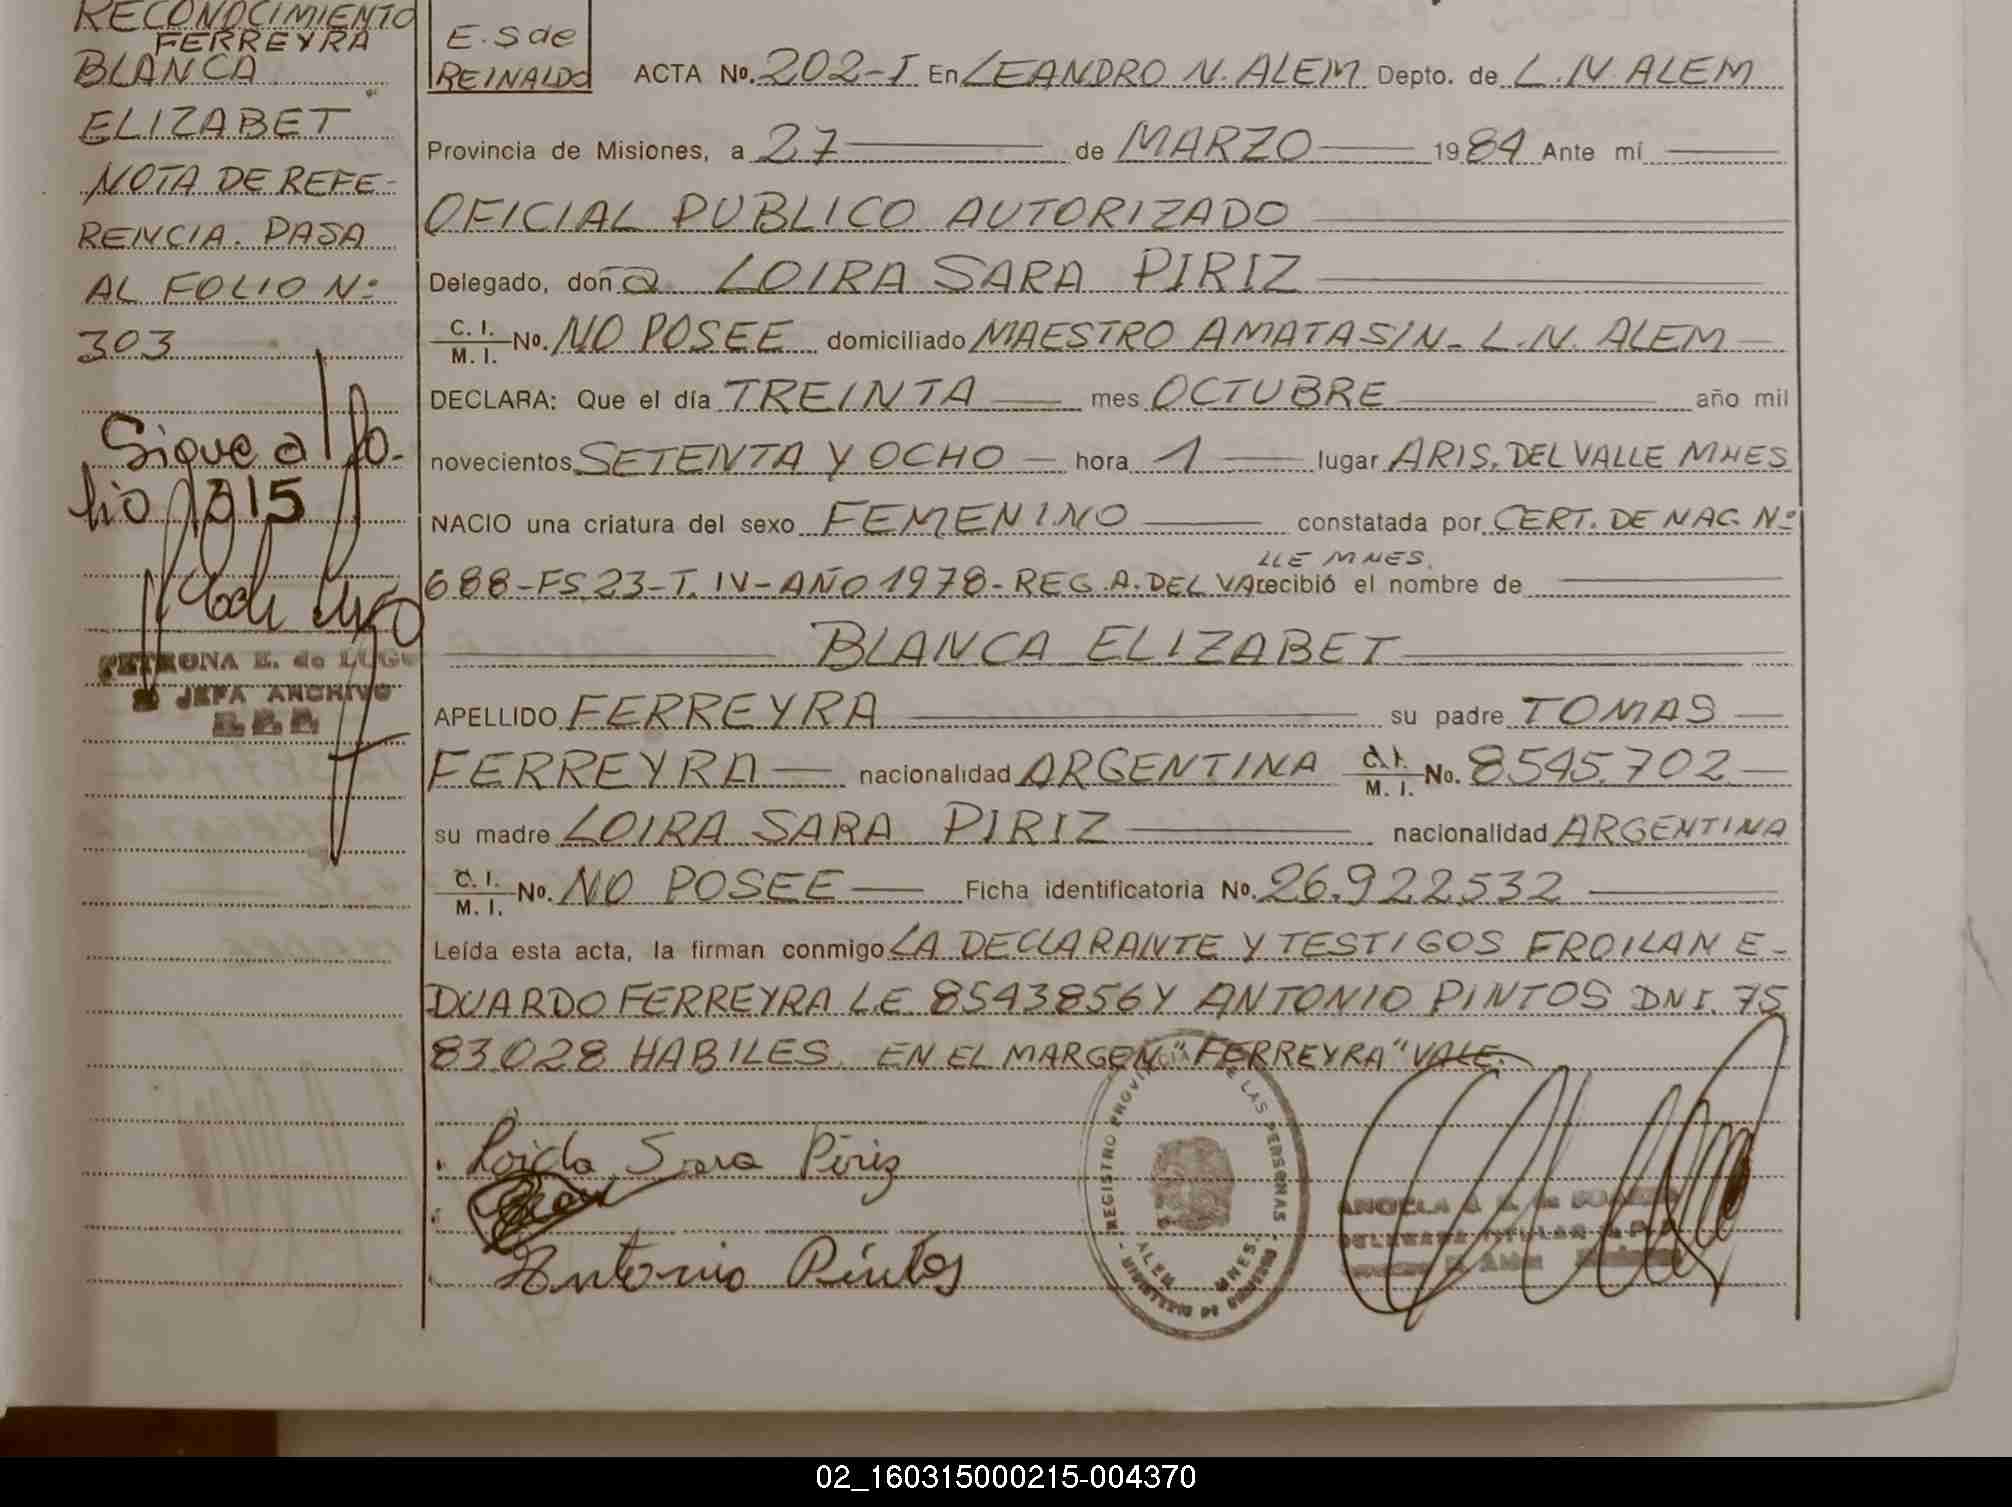 RECONOCIMIENTO
FERREYRA
BLANCA
ELIZABET
NOTA DE REFE-
RENCIA. PASA
AL FOLIO Nº
303
Sigue al fo-
lio 315
PETRONA E. de LUGO
JEFA ARCHIVO
E. S de
REINALDO
ACTA Nº. 202-I En LEANDRO N. ALEM Depto. de L. N. ALEM
Provincia de Misiones, a 27 de MARZO 1984 Ante mí
OFICIAL PUBLICO AUTORIZADO
Delegado, doña LOIRA SARA PIRIZ
C. I. / M. I. Nº. NO POSEE domiciliado MAESTRO AMATASIN- L.N. ALEM
DECLARA: Que el día TREINTA mes OCTUBRE año mil
novecientos SETENTA Y OCHO hora 1 lugar ARIS. DEL VALLE MNES
NACIO una criatura del sexo FEMENINO constatada por CERT. DE NAC. Nº
LLE MNES.
688-FS.23-T. IV-AÑO 1978- REG.A.DEL VA recibió el nombre de
BLANCA ELIZABET
APELLIDO FERREYRA su padre TOMAS
FERREYRA nacionalidad ARGENTINA C.I. / M. I. No. 8545.702
su madre LOIRA SARA PIRIZ nacionalidad ARGENTINA
C. I. / M. I. Nº. NO POSEE Ficha identificatoria Nº. 26.922532
Leída esta acta, la firman conmigo LA DECLARANTE Y TESTIGOS FROILAN E-
DUARDO FERREYRA L.E. 8543856 Y ANTONIO PINTOS DNI. 75
83.028 HABILES. EN EL MARGEN "FERREYRA" VALE.
Loida Sara Piriz
Antonio Pintos
REGISTRO PROVINCIAL DE LAS PERSONAS
ALEM MNES.
MINISTERIO DE GOBIERNO
02_160315000215-004370